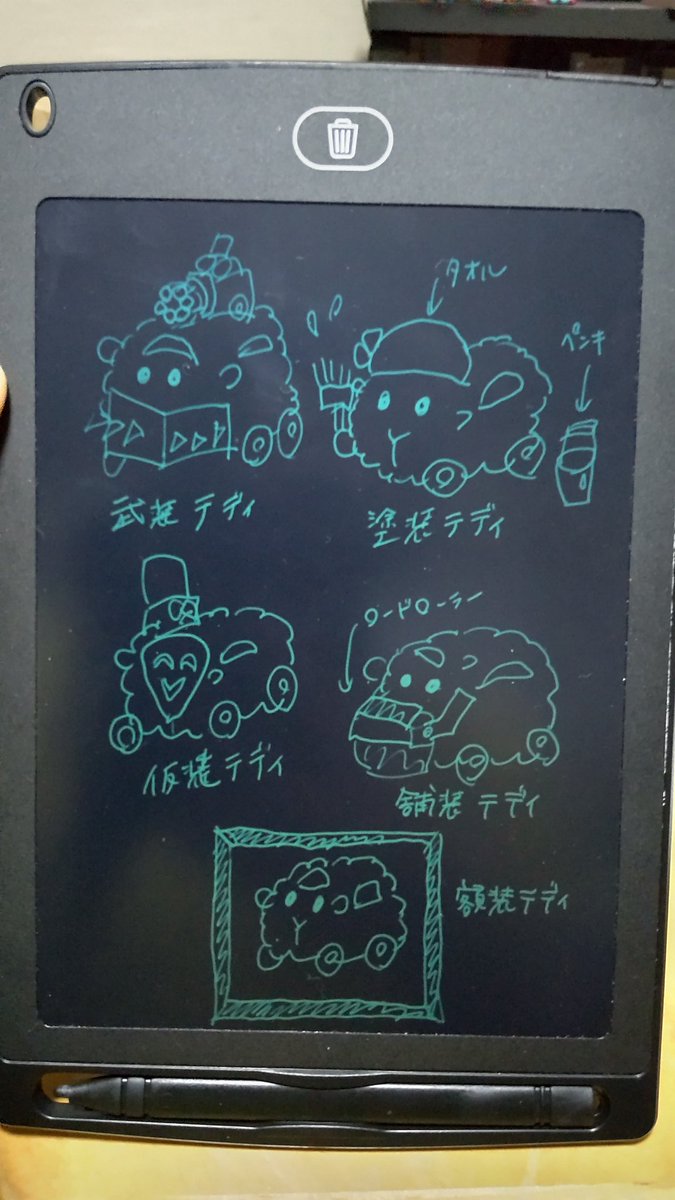 タオル
ペンキ
武装テディ
塗装テディ
ロードローラー
仮装テディ
舗装テディ
額装テディ